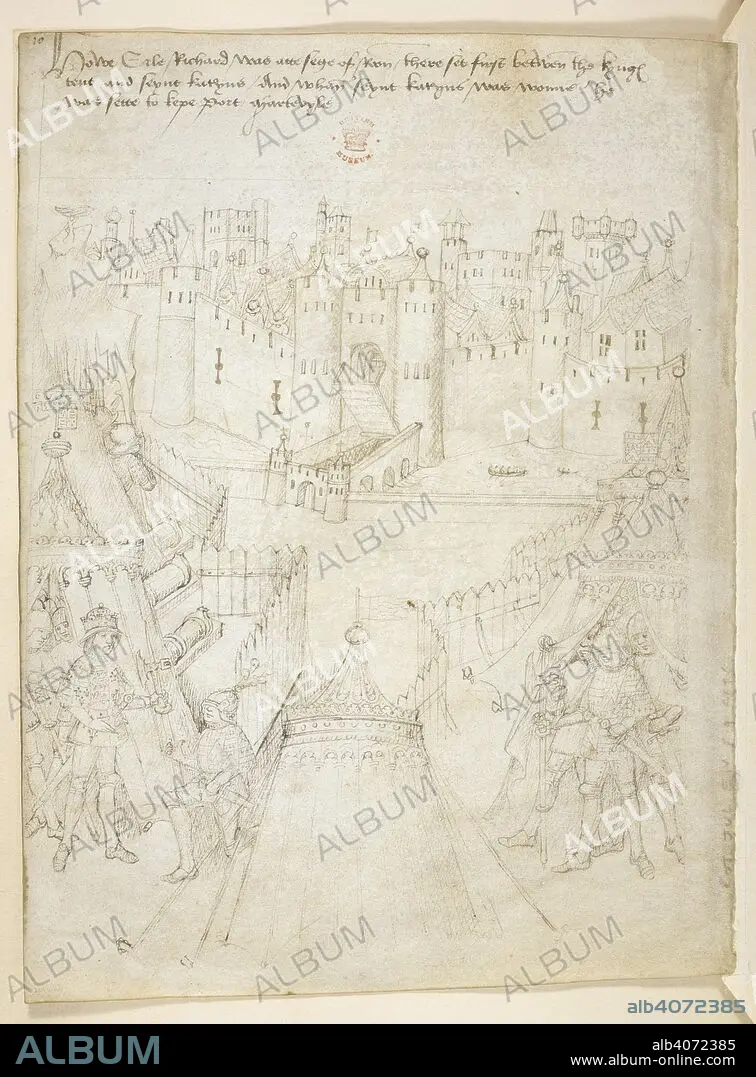 Howe Erle Richard was atte sege of Roon there set first betwen the kyng
tent and seynt kateryns And whan seynt kateryns was wonne he
was sette to kepe Port martevyle
BRITISH
MUSEUM
ALBUM
alb4072385
ALBUM
alb4072385
www.album-online.com